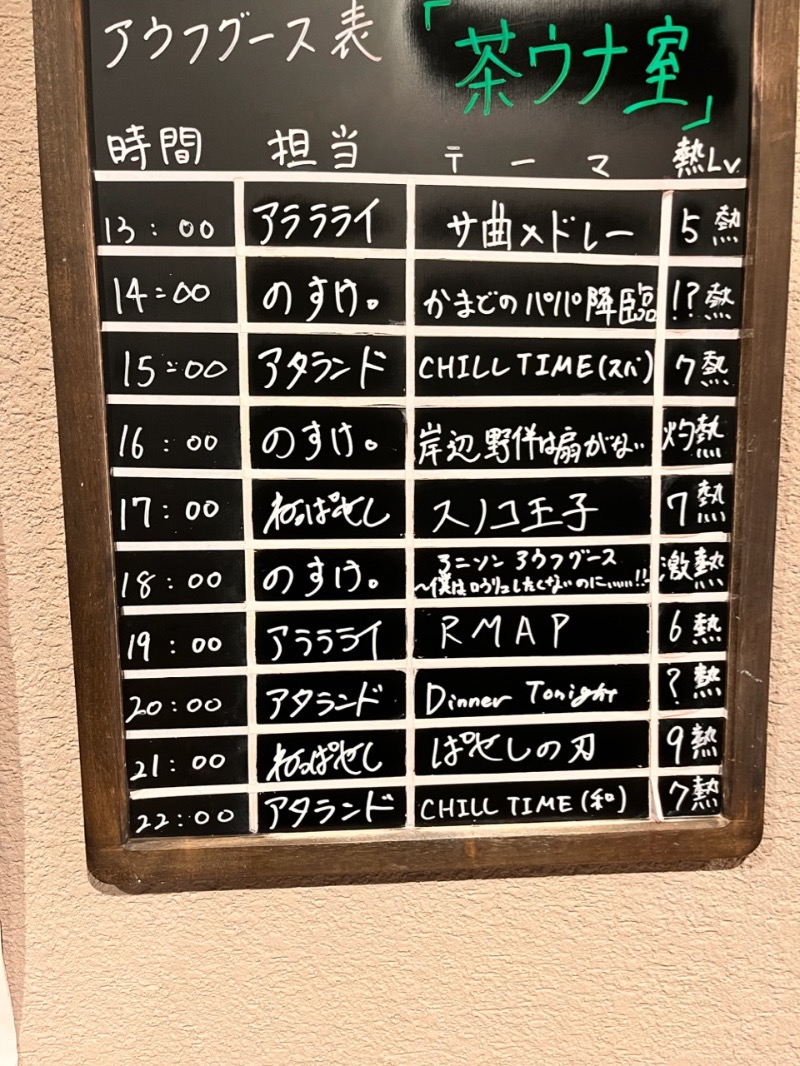 アウフグース表 「茶ウナ室」
時間 担当 テーマ 熱Lv.
13:00 アララライ サ曲メドレー 5熱
14:00 のすけ。 かまどのパパ降臨 !?熱
15:00 アタランド CHILL TIME(スパ) 7熱
16:00 のすけ。 岸辺野伴は扇がない 灼熱
17:00 ねっぱせし スノコ王子 7熱
18:00 のすけ。 アニソン アウフグース 激熱
〜僕はロウリュしたくないのにぃぃぃ!!〜
19:00 アララライ RMAP 6熱
20:00 アタランド Dinner Tonight ?熱
21:00 ねっぱせし ぱせしの刃 9熱
22:00 アタランド CHILL TIME(和) 7熱